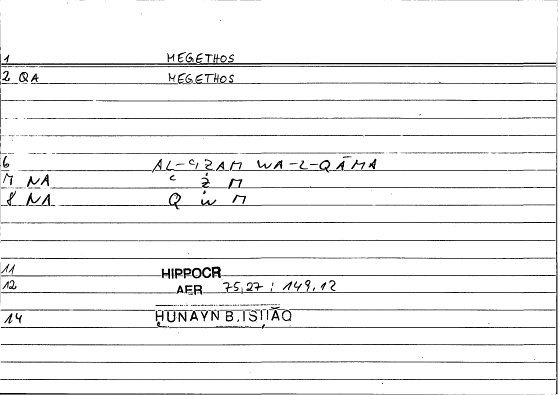 1 MEGETHOS
2 QA MEGETHOS
6 AL-ʿIẒAM WA-L-QĀMA
7 NA ʿ ẓ M
8 NA Q w M
11 HIPPOCR
12 AER 75,27 : 149,12
14 ḤUNAYN B. ISḤĀQ